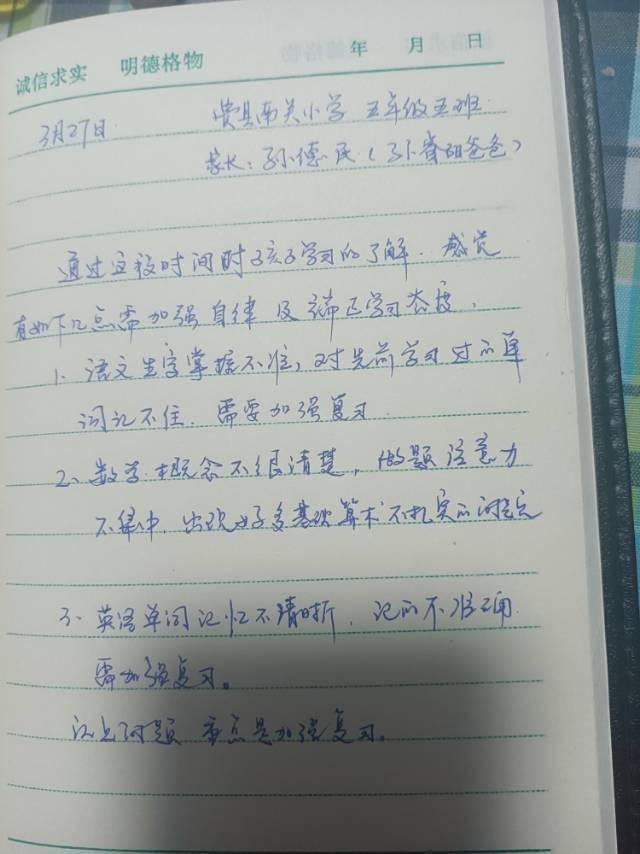 诚信求实 明德格物 年 月 日
3月27日 费县南关小学 五年级五班
家长:孙德民(孙睿甜爸爸)
通过这段时间对孩子学习的了解.感觉
有如下几点需加强自律及端正学习态度.
1、语文生字掌握不准,对先前学习过的单
词记不住.需要加强复习
2、数学.概念不很清楚,做题注意力
不集中.出现好多基础算术不扎实的问题
3、英语单词记忆不清晰,记的不准确.
需加强复习。
以上问题 重点是加强复习。